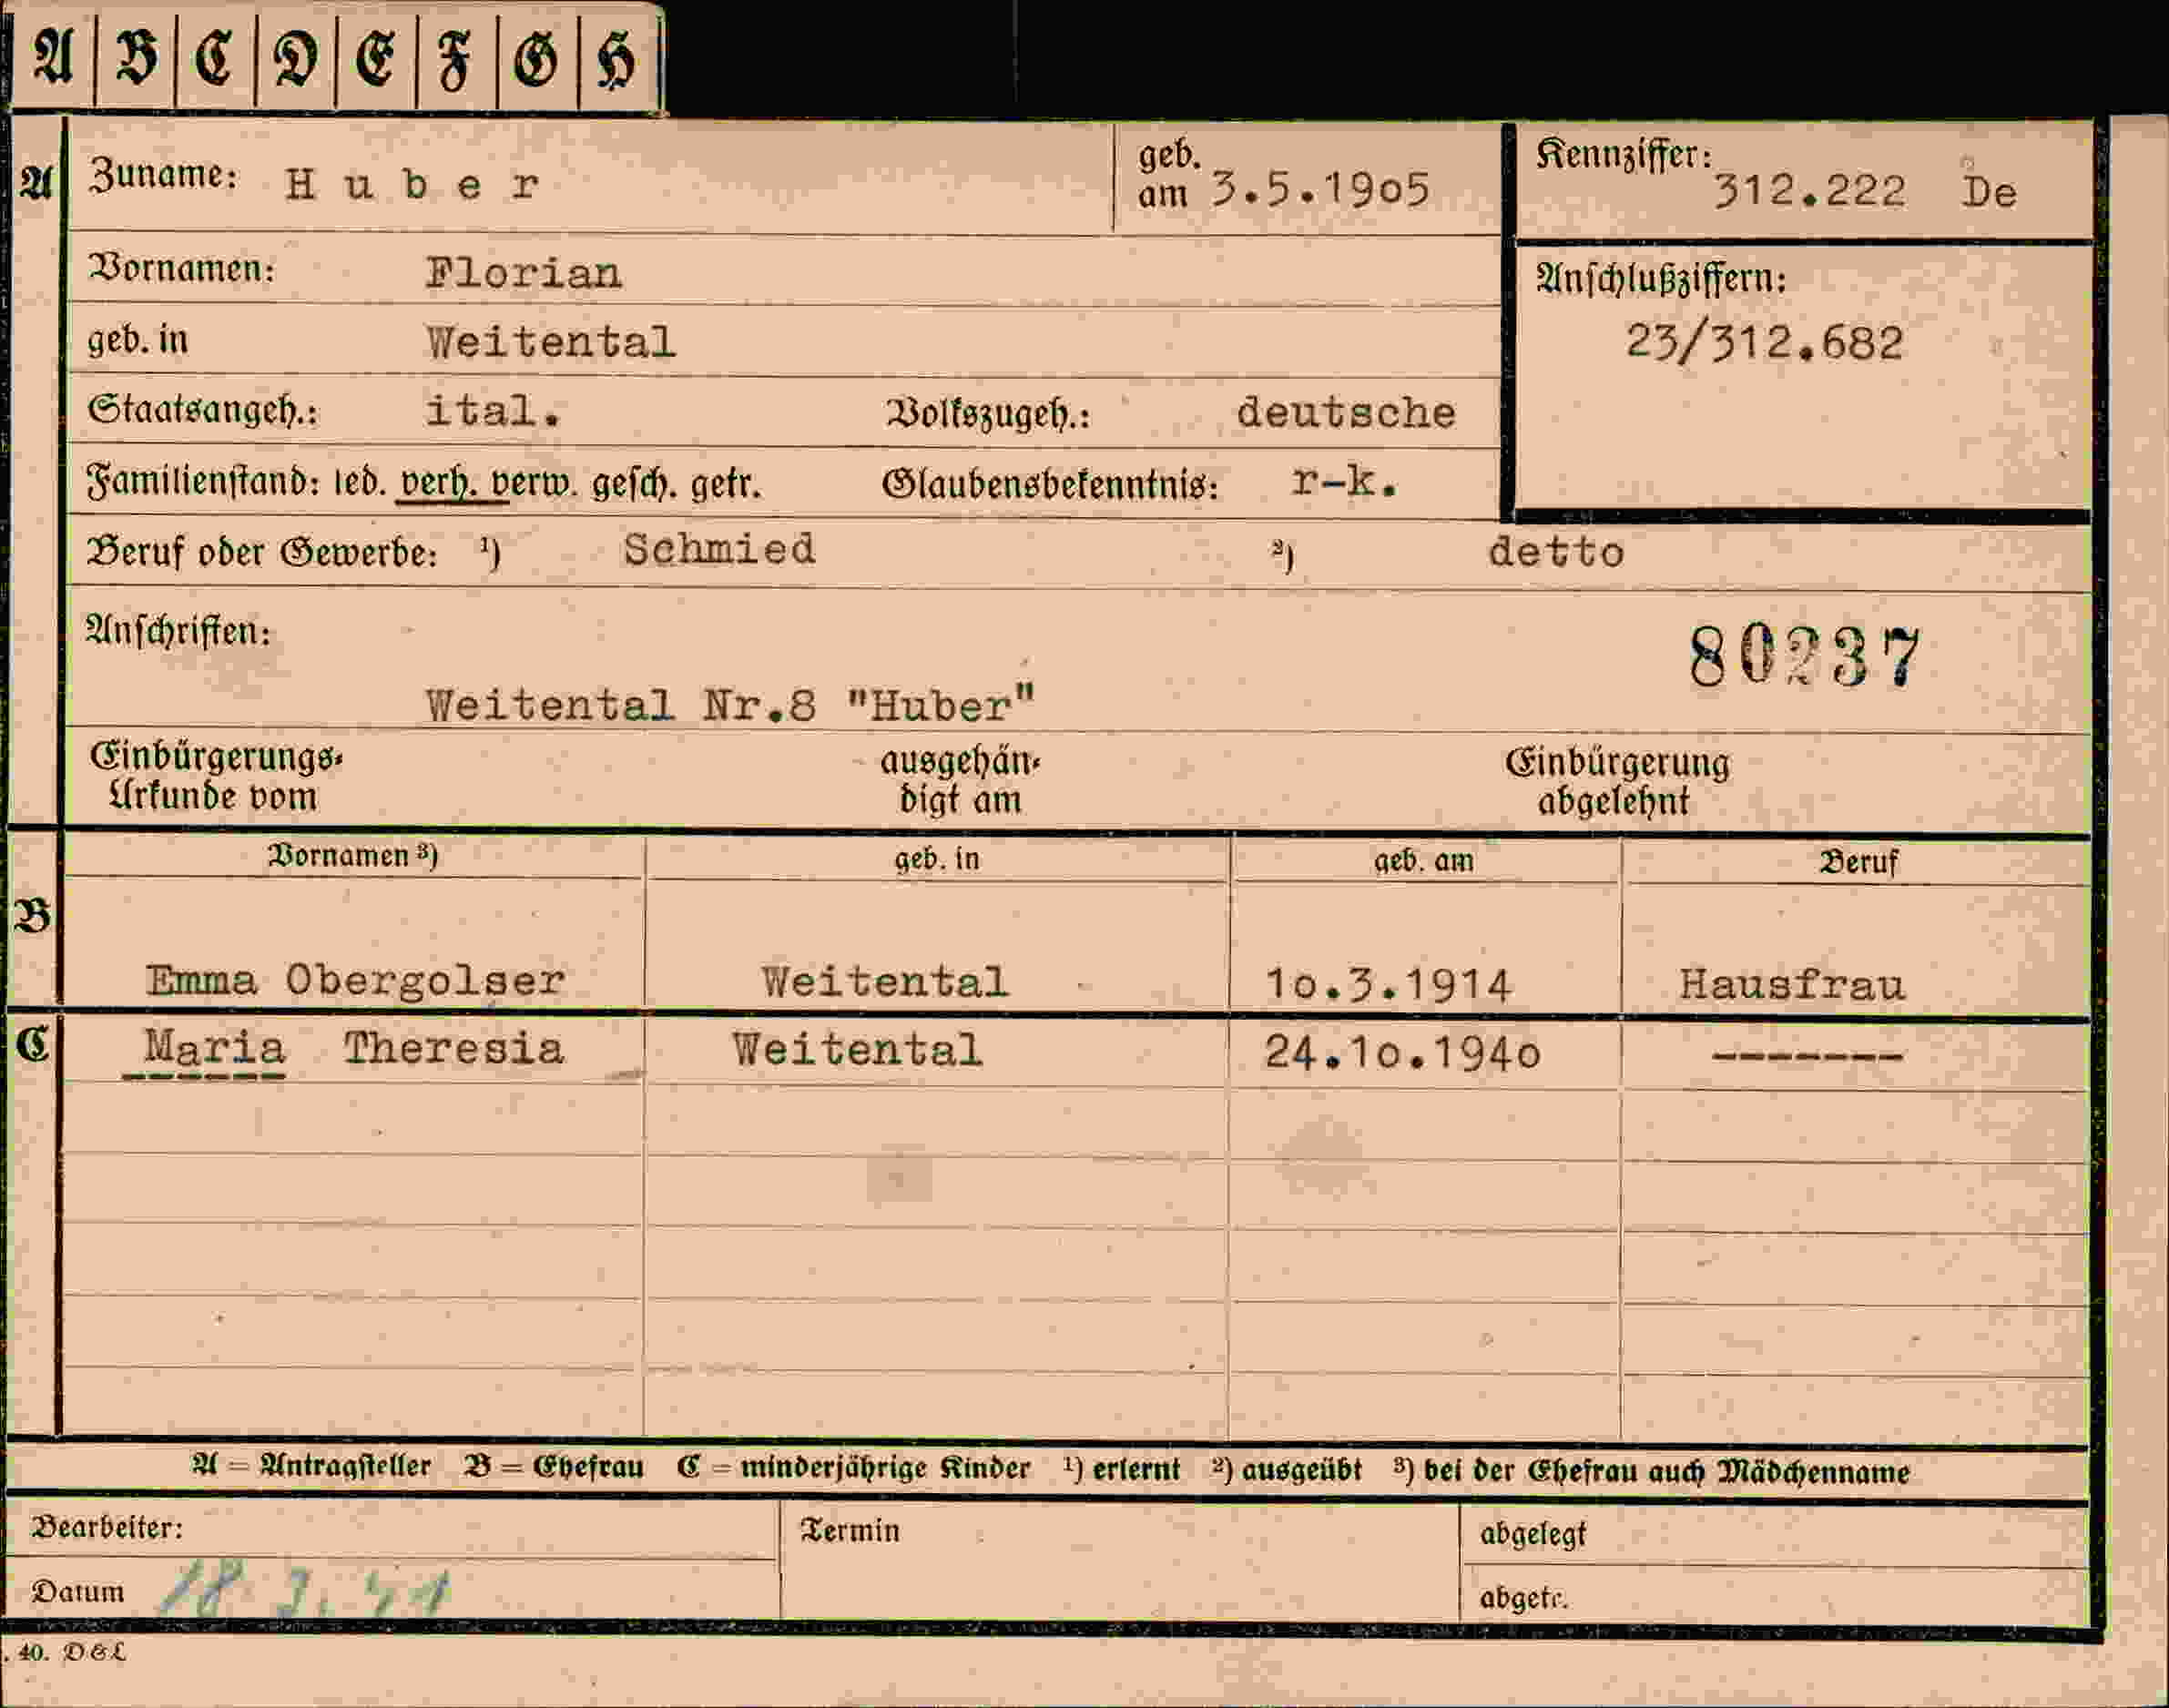 A B C D E F G H
A Zuname: H u b e r geb. am 3.5.19o5 Kennziffer: 312.222 De
Vornamen: Florian
Anschlußziffern:
geb. in Weitental 23/312.682
Staatsangeh.: ital. Volkszugeh.: deutsche
Familienstand: led. verh. verw. gesch. getr. Glaubensbekenntnis: r-k.
Beruf oder Gewerbe: 1) Schmied 2) detto
Anschriften: 80237
Weitental Nr.8 "Huber"
Einbürgerungs- ausgehän- Einbürgerung
Urkunde vom digt am abgelehnt
Vornamen 3) geb. in geb. am Beruf
B
Emma Obergolser Weitental 1o.3.1914 Hausfrau
C Maria Theresia Weitental 24.1o.194o -------
A = Antragsteller B = Ehefrau C = minderjährige Kinder 1) erlernt 2) ausgeübt 3) bei der Ehefrau auch Mädchenname
Bearbeiter: Termin abgelegt
Datum 18.3.41 abgetr.
. 40. D&L